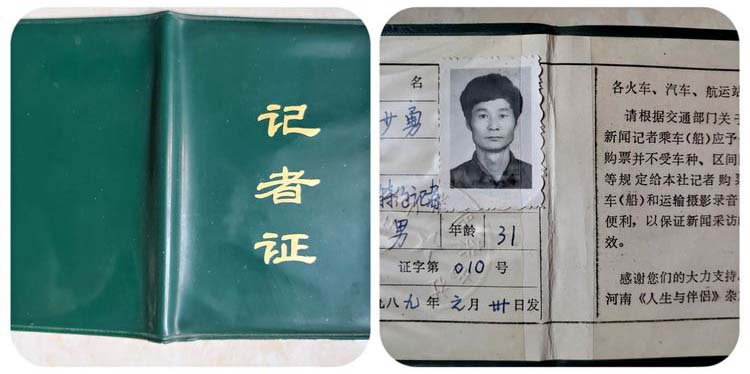 记
者
证
名
少勇
特约记者
男 年龄 31
证字第 010 号
八九年元月卅日发
各火车、汽车、航运站
请根据交通部门关于
新闻记者乘车(船)应予
购票并不受车种、区间
等规定给本社记者购
车(船)和运输摄影录音
便利，以保证新闻采访
效。
感谢您们的大力支持。
河南《人生与伴侣》杂